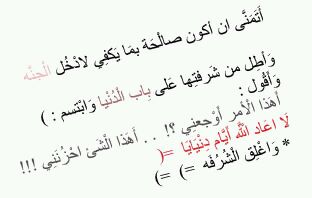 أَتَمَنَّى ان أكون صالْحَة بمَا يَكفِي لادْخُل الْجنَّه
وَأَطِل من شَرفتِها عَلى بِاب الدُنْيا وَابْتسم : )
وَأَقُول :
أهَذا الْأمر أوْجعنِي ؟! . . أهَذَا الْشَئ احْزُننِي !!!
لَا اعَاد اللَّه أيَّام دِنْيَايَا =(
* وَاغْلِق الْشُرُفَه =) =)